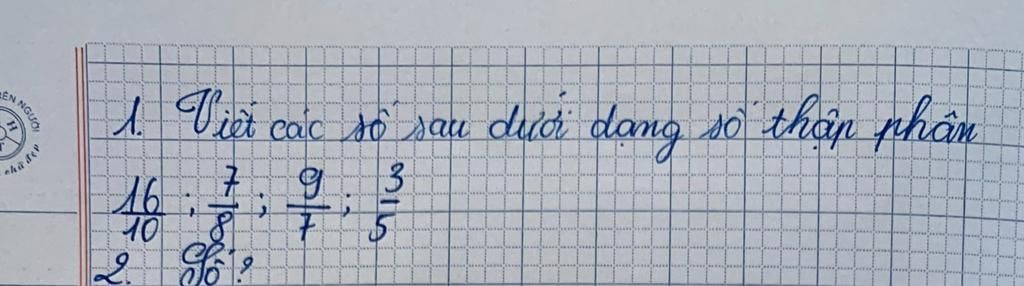 1. Viết các số sau dưới dạng số thập phân
16/10 ; 7/8 ; 9/7 ; 3/5
2. Số?
ÊN NGƯỜI
chữ đẹp